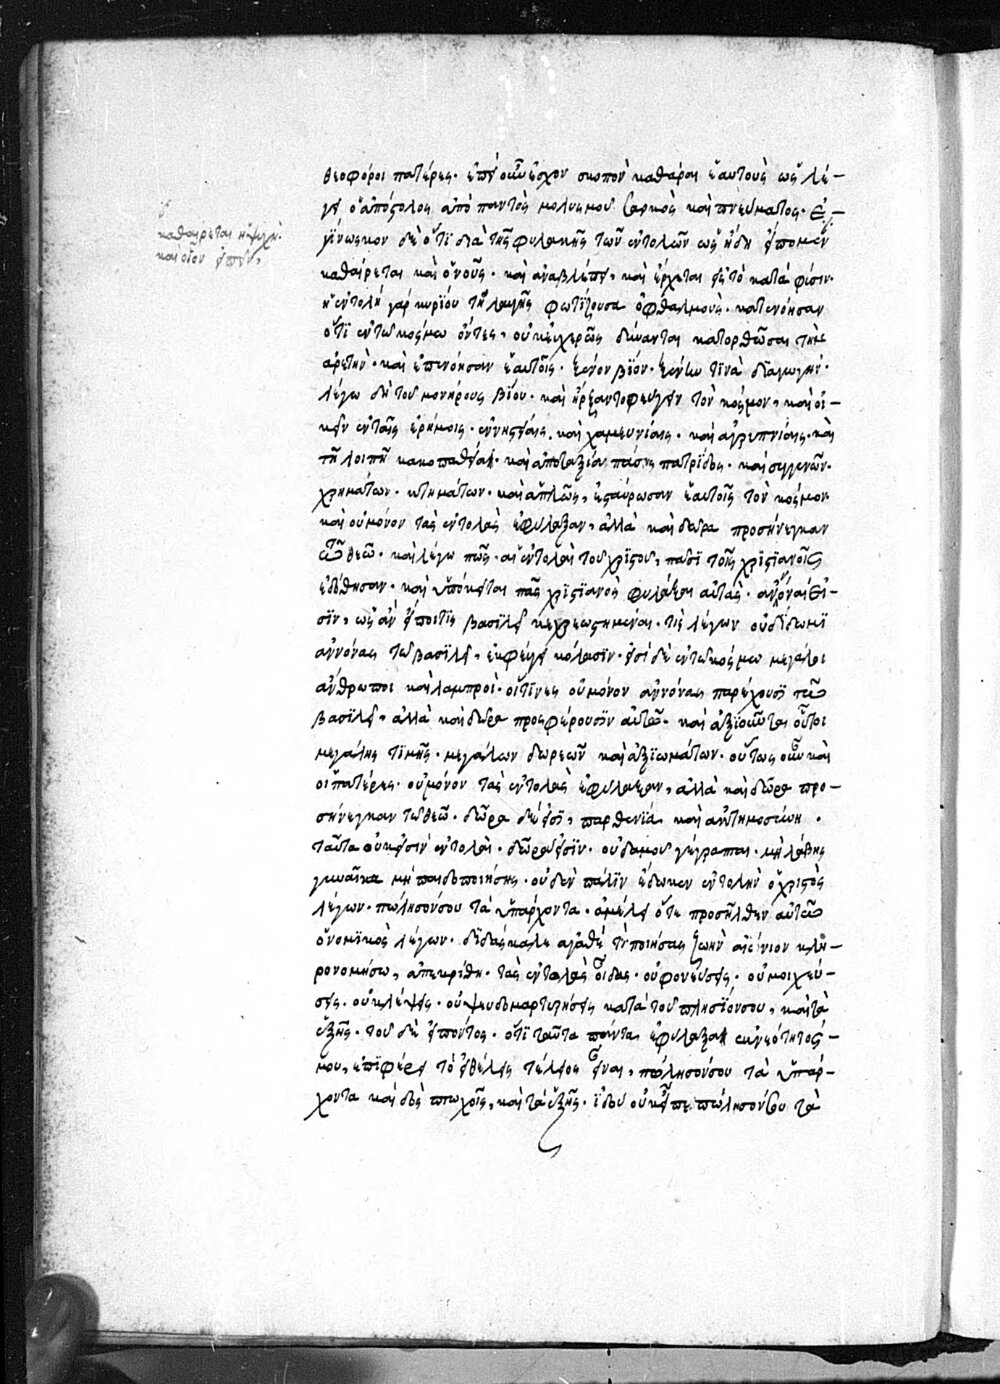 καθαίρεται ἡ ψυχὴ.
καὶ οἷον εἰπεῖν,
θεοφόροι πατέρες. ἐπεὶ οὖν ἔσχον σκοπὸν καθάραι ἑαυτοὺς ὡς λέ-
γει ὁ ἀπόστολος ἀπὸ παντὸς μολυσμοῦ σαρκὸς καὶ πνεύματος. ἐ-
γίνωσκον δὲ ὅτι διὰ τῆς φυλακῆς τῶν ἐντολῶν ὡς ἤδη εἴπομεν
καθαίρεται καὶ ὁ νοῦς. καὶ ἀναβλέπει, καὶ ἔρχεται εἰς τὸ κατὰ φύσιν.
ἡ ἐντολὴ γὰρ κυρίου τηλαυγὴς φωτίζουσα ὀφθαλμούς. κατενόησαν
ὅτι ἐν τῷ κόσμῳ ὄντες, οὐκ εὐχερῶς δύνανται κατορθῶσαι τὴν
ἀρετήν. καὶ ἐπενόησαν ἑαυτοῖς. ξένον βίον. ξένην τινὰ διαγωγήν.
λέγω δὴ τοῦ μονήρους βίου. καὶ ἤρξαντο φεύγειν τὸν κόσμον, καὶ οἰ-
κεῖν ἐν ταῖς ἐρήμοις. ἐν νηστείαις. καὶ χαμευνίαις. καὶ ἀγρυπνίαις. καὶ
τῇ λοιπῇ κακοπαθείᾳ. καὶ ἀποταξίαν πάσης πατρίδος. καὶ συγγενῶν.
χρημάτων. κτημάτων. καὶ ἁπλῶς, ἐσταύρωσαν ἑαυτοῖς τὸν κόσμον.
καὶ οὐ μόνον τὰς ἐντολὰς ἐφύλαξαν, ἀλλὰ καὶ δῶρα προσήνεγκαν
τῷ θεῷ. καὶ λέγω πῶς. αἱ ἐντολαὶ τοῦ χριστοῦ, πᾶσι τοῖς χριστιανοῖς
ἐδόθησαν. καὶ ὑπόκειται πᾶς χριστιανὸς φυλάξαι αὐτάς. ἀννόναι εἰ-
σιν, ὡς ἂν εἴποι τις βασιλεῖ κεχρεωστημέναι. τίς λέγων οὐ δίδωμι
ἀννόνας τῷ βασιλεῖ, ἐκφεύγει κόλασιν. εἰσὶ δὲ ἐν τῷ κόσμῳ μεγάλοι
ἄνθρωποι καὶ λαμπροί. οἵτινες οὐ μόνον ἀννόνας παρέχουσι τῷ
βασιλεῖ, ἀλλὰ καὶ δῶρα προσφέρουσιν αὐτῷ. καὶ ἀξιοῦνται οὗτοι
μεγάλης τιμῆς. μεγάλων δωρεῶν καὶ ἀξιωμάτων. οὕτως οὖν καὶ
οἱ πατέρες. οὐ μόνον τὰς ἐντολὰς ἐφύλαξαν, ἀλλὰ καὶ δῶρα προ-
σήνεγκαν τῷ θεῷ. δῶρα δέ εἰσι, παρθενία καὶ ἀκτημοσύνη.
ταῦτα οὐκ εἰσὶν ἐντολαί. δῶρά εἰσιν. οὐδαμοῦ γέγραπται. μὴ λάβῃς
γυναῖκα μὴ παιδοποιήσῃς. οὐδὲν πάλιν ἔδωκεν ἐντολὴν ὁ χριστὸς
λέγων. πώλησόν σου τὰ ὑπάρχοντα. ἀμέλει ὅτε προσῆλθεν αὐτῷ
ὁ νομικὸς λέγων. διδάσκαλε ἀγαθὲ τί ποιήσας ζωὴν αἰώνιον κλη-
ρονομήσω, ἀπεκρίθη. τὰς ἐντολὰς οἶδας. οὐ φονεύσεις. οὐ μοιχεύ-
σεις. οὐ κλέψεις. οὐ ψευδομαρτυρήσεις κατὰ τοῦ πλησίον σου, καὶ τὰ
ἑξῆς. τοῦ δὲ εἰπόντος. ὅτι ταῦτα πάντα ἐφύλαξα ἐκ νεότητός
μου, ἐπιφέρει τὸ εἰ θέλεις τέλειος εἶναι, πώλησόν σου τὰ ὑπάρ-
χοντα καὶ δὸς πτωχοῖς, καὶ τὰ ἑξῆς. ἰδοὺ οὐκ εἶπε πώλησόν σου τὰ